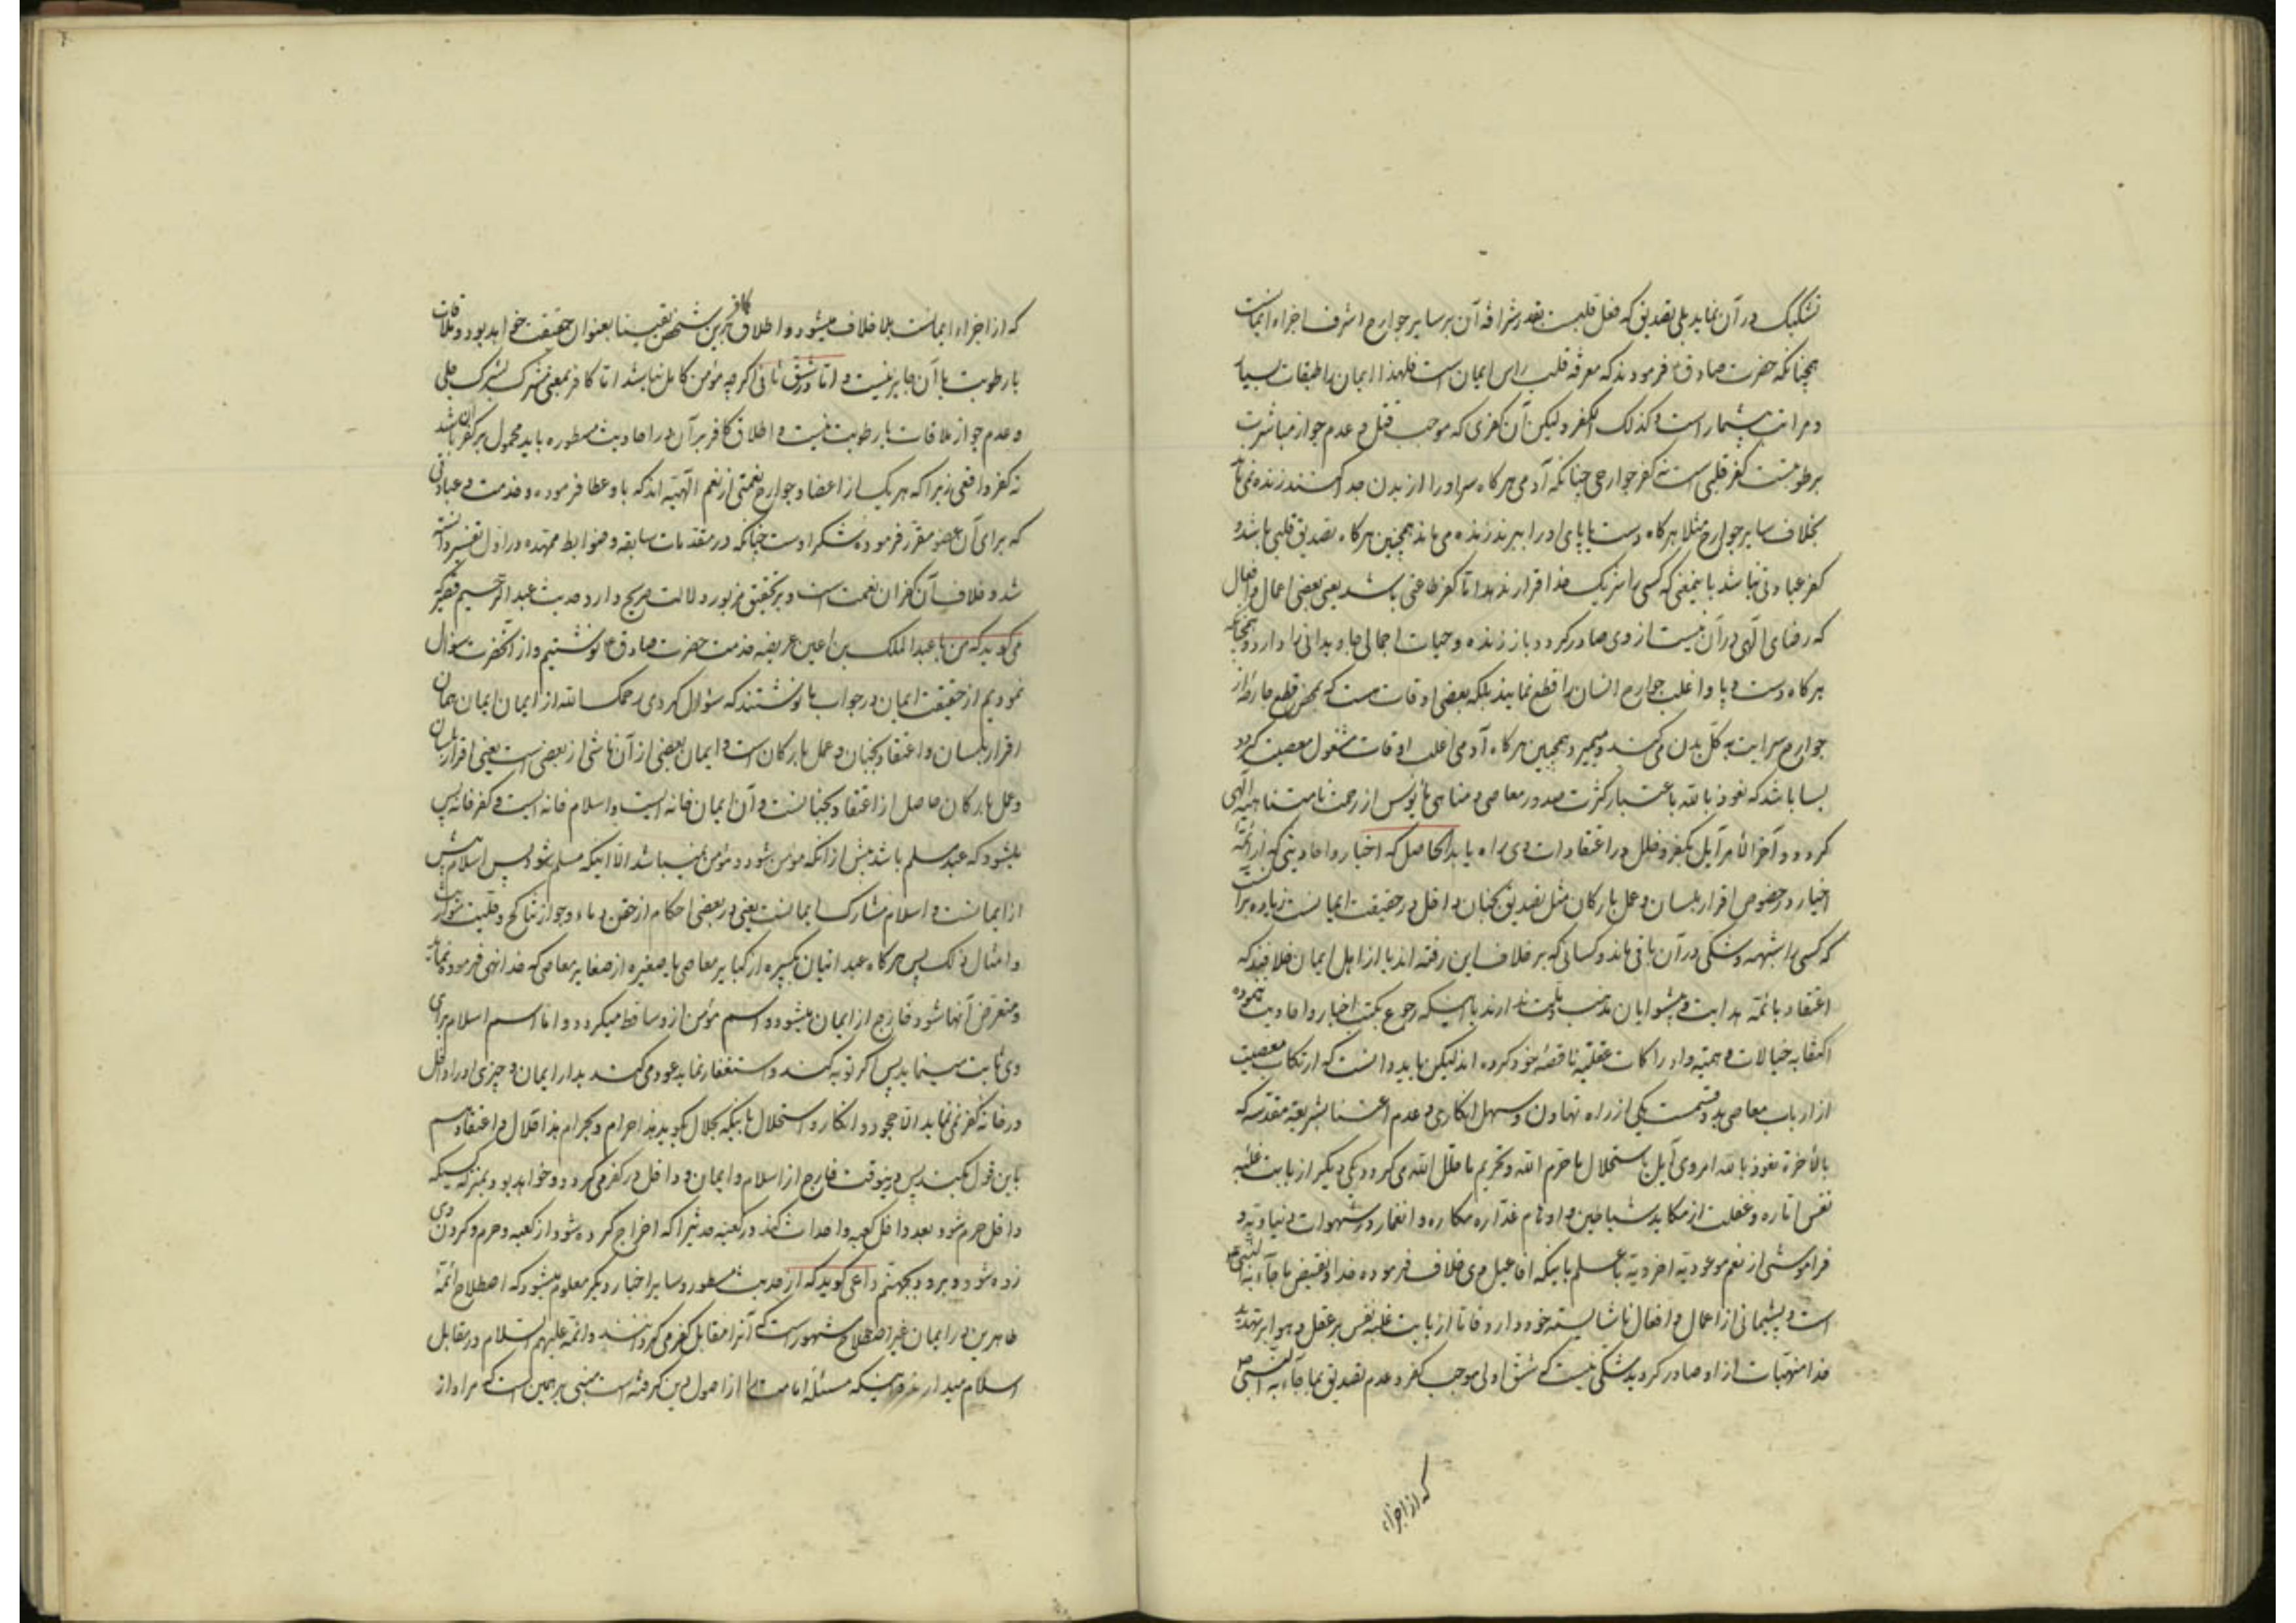 تشکیک در آن نماید بلی تصدیق که فعل قلبست بقدر شرافهٔ آن بر سایر جوارح اشرف اجزاء ایمانست
همچنانکه حضرت صادق فرمودند که معرفهٔ قلب راس ایمان است فلهذا ایمان را طبقات بسیار
و مراتب بیشمار است و کذلک الکفر ولیکن آن کفری که موجب قتل و عدم جواز مباشرت
برطوبتست کفر قلبی است نه کفر جوارحی چنانکه آدمی هرگاه سر او را از بدن جدا کنند زنده نمی ماند
بخلاف سایر جوارح مثلا هرگاه دست یا پای او را ببرند زنده می ماند همچنین هرگاه تصدیق قلبی باشد و
کفر عبادتی نباشد باینمعنی که کسی را شریک خدا قرار ندهد اما کفر طاعتی باشد یعنی بعضی اعمال و افعال
که رضای الهی در آن نیست از وی صادر گردد باز زنده و حیات اجمالی جاویدانی را دارد و همچنانکه
هرگاه دست و پا و اغلب جوارح انسان را قطع نمایند بلکه بعضی اوقات هست که بمحض قطع جارحه از
جوارح سرایت به کل بدن می کند و میمیرد همچنین هرگاه آدمی اغلب اوقات مشغول معصیت گردد
بسا باشد که نعوذ بالله باعتبار کثرت صدور معاصی و مناهی مأیوس از رحمت نامتناهیه الهی
گردد و آخر الامر آیل بکفر و خلل در اعتقادات وی راه یابد الحاصل که اخبار و احادیثی که از ائمه
اخیار در خصوص اقرار بلسان و عمل بارکان مثل تصدیق بجنان داخل در حقیقت ایمانست زیاده بر آنست
که کسی را شبهه و شکی در آن باقی ماند و کسانی که بر خلاف این رفته اند یا از اهل ایمان خلافند که
اعتقاد بائمه هدایت و پیشوایان مذهب و ملت ندارند یا اینکه رجوع بکتب اخبار و احادیث ننموده
اکتفا به خیالات وهمیه و ادراکات عقلیه ناقصه خود کرده اند لیکن باید دانست که ارتکاب معصیت
از ارباب معاصی بدو قسمست یکی از راه تهاون و سهل انکاری و عدم اعتنا بشریعهٔ مقدسه که
بالاخره نعوذ بالله امر وی آیل باستحلال ما حرم الله و تحریم ما حلل الله می گردد یکی دیگر از بابت غلبه
نفس اماره و غفلت از مکاید شیاطین و اوهام غداره مکاره و انغمار در شهوات دنیاویه و
فراموشی از نعم موعودیه اخرویه با علم باینکه افاعیل وی خلاف فرموده خدا و نقیض ما جاء به النبی ص
است و پشیمانی از اعمال و افعال ناشایسته خود دارد فاما از بابت غلبه نفس بر عقل و هوا بر تهدید
خدا منهیات از او صادر گردید شکی نیست که شق اولی موجب کفر و عدم تصدیق بما جاء به النبی ص
که از اجزاء
که از اجزاء ایمانست بلا خلاف میشود و اطلاق کافر بر این شخص یقینا بعنوان حقیقت خواهد بود و ملاقات
با رطوبت با آن جایز نیست و اما در شق ثانی اگرچه مؤمن کامل نباشد اما کافر بمعنی مشرک بشرک جلی
و عدم جواز ملاقات با رطوبت نیست و اطلاق کافر بر آن در احادیث مسطوره باید محمول بر کفران باشد
نه کفر واقعی زیرا که هر یک از اعضا و جوارح نعمتی از نعم الهیه اند که باو عطا فرموده و خدمت و عبادتی
که برای آن عضو مقرر فرموده شکر اوست چنانکه در مقدمات سابقه و ضوابط ممهده در اول تفسیر دانسته
شد و خلاف آن کفران نعمت است و بر تحقیق مزبور دلالت صریح دارد حدیث عبدالرحیم قصیر که
می گوید که من با عبدالملک بن اعین عریضه خدمت حضرت صادق ع نوشتیم و از آنحضرت سؤال
نمودیم از حقیقت ایمان در جواب ما نوشتند که سؤال کردی رحمک الله از ایمان ایمان همان
اقرار بلسان و اعتقاد بجنان و عمل بارکان است و ایمان بعضی از آن ناشی از بعضی است یعنی اقرار بلسان
و عمل بارکان حاصل از اعتقاد بجنانست و آن ایمان خانه ایست و اسلام خانه ایست و کفر خانه پس
میشود که عبد مسلم باشد پیش از آنکه مؤمن شود و مؤمن نمیباشد الا اینکه مسلم شود پس اسلام پیش
از ایمانست و اسلام مشارک ایمانست یعنی در بعضی احکام از حقن دماء و جواز تناکح و
و امثال ذلک پس هرگاه عبد اتیان بکبیره از کبایر معاصی یا صغیره از صغایر معاصی که خدا نهی فرموده نماید
و متعرض آنها شود خارج از ایمان میشود و اسم مؤمن ازو ساقط میگردد و اما اسم اسلام برای
وی ثابت مینماید پس اگر توبه کند و استغفار نماید عود می کند بدار ایمان و چیزی او را داخل
در خانه کفر نمی نماید الا جحود و انکار و استحلال باینکه بحلال بگوید هذا حرام و بحرام هذا حلال و اعتقاد هم
باین قول بکند پس درینوقت خارج از اسلام و ایمان و داخل در کفر می گردد و خواهد بود بمنزله کسیکه
داخل حرم شود بعد داخل کعبه و احداث کند در کعبه حدثیرا که اخراج کرده شود از کعبه و حرم و گردن وی
زده شود و برود بجهنم داعی گوید که از حدیث مسطور و سایر اخبار دیگر معلوم میشود که اصطلاح ائمه
طاهرین در ایمان غیر اصطلاح مشهور است که آنرا مقابل کفر می گردانند و ائمه علیهم السلام در مقابل
اسلام میدارند و اینکه مسئله امامت را از اصول دین گرفته است مبنی بر همین است که مراد از